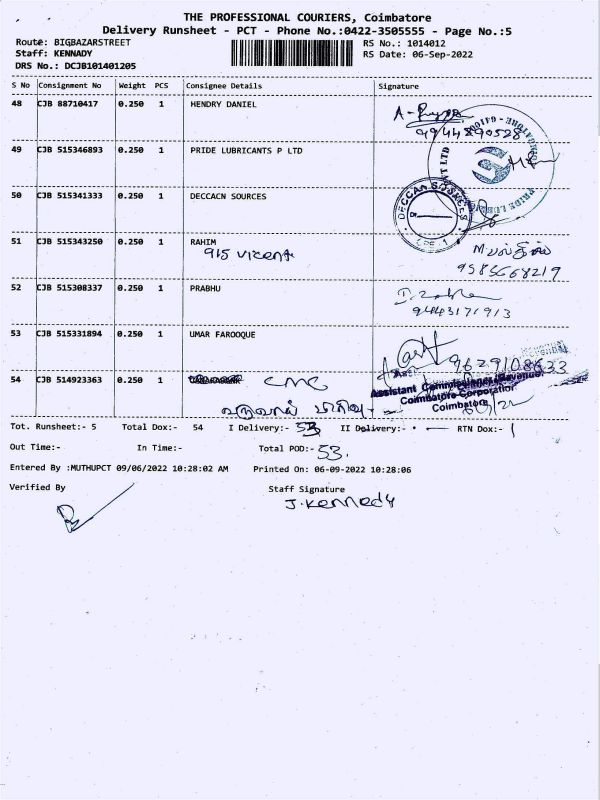 THE PROFESSIONAL COURIERS, Coimbatore
Delivery Runsheet - PCT - Phone No.:0422-3505555 - Page No.:5
Route: BIGBAZARSTREET
RS No.: 1014012
Staff: KENNADY
RS Date: 06-Sep-2022
DRS No.: DCJB101401205
S No Consignment No Weight PCS Consignee Details Signature
48 CJB 88710417 0.250 1 HENDRY DANIEL
9944890528
49 CJB 515346893 0.250 1 PRIDE LUBRICANTS P LTD
50 CJB 515341333 0.250 1 DECCACN SOURCES
DECCAN SOURCES
CBE-1
51 CJB 515343250 0.250 1 RAHIM
915 Vicent
9585668219
52 CJB 515308337 0.250 1 PRABHU
9444317913
53 CJB 515331894 0.250 1 UMAR FAROOQUE
9629108633
54 CJB 514923363 0.250 1 CMC
Assistant Commissioner (Revenue)
Coimbatore Corporation
Coimbatore
Tot. Runsheet:- 5 Total Dox:- 54 I Delivery:- 53 II Delivery:- RTN Dox:- 1
Out Time:- In Time:- Total POD:- 53.
Entered By :MUTHUPCT 09/06/2022 10:28:02 AM Printed On: 06-09-2022 10:28:06
Verified By Staff Signature
J.Kennedy